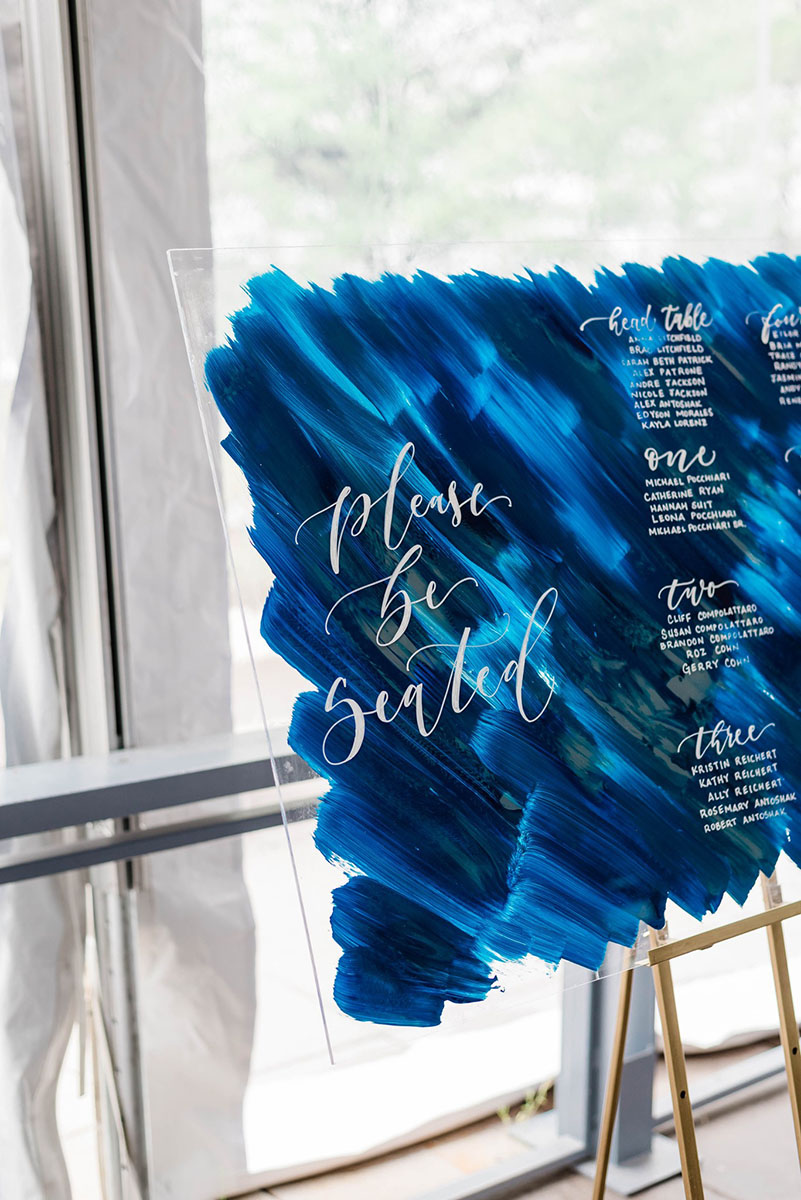 please
be
seated
head table
LITCHFIELD
BRAD LITCHFIELD
SARAH BETH PATRICK
ALEX PATRONE
ANDRE JACKSON
NICOLE JACKSON
ALEX ANTOSHAK
EDYSON MORALES
KAYLA LORENZ
one
MICHAEL POCCHIARI
CATHERINE RYAN
HANNAH SUIT
LEONA POCCHIARI
MICHAEL POCCHIARI SR.
two
CLIFF COMPOLATTARO
SUSAN COMPOLATTARO
BRANDON COMPOLATTARO
ROZ COHN
GERRY COHN
three
KRISTIN REICHERT
KATHY REICHERT
ALLY REICHERT
ROSEMARY ANTOSHAK
ROBERT ANTOSHAK